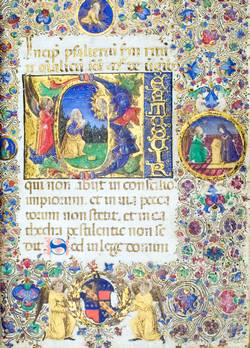 Incip psalteriu
B
qui non abiit in consilio
impiorum, et in uia pecca
torum non stetit, et in ca
thedra pestilentie non se
dit Sed in lege domini